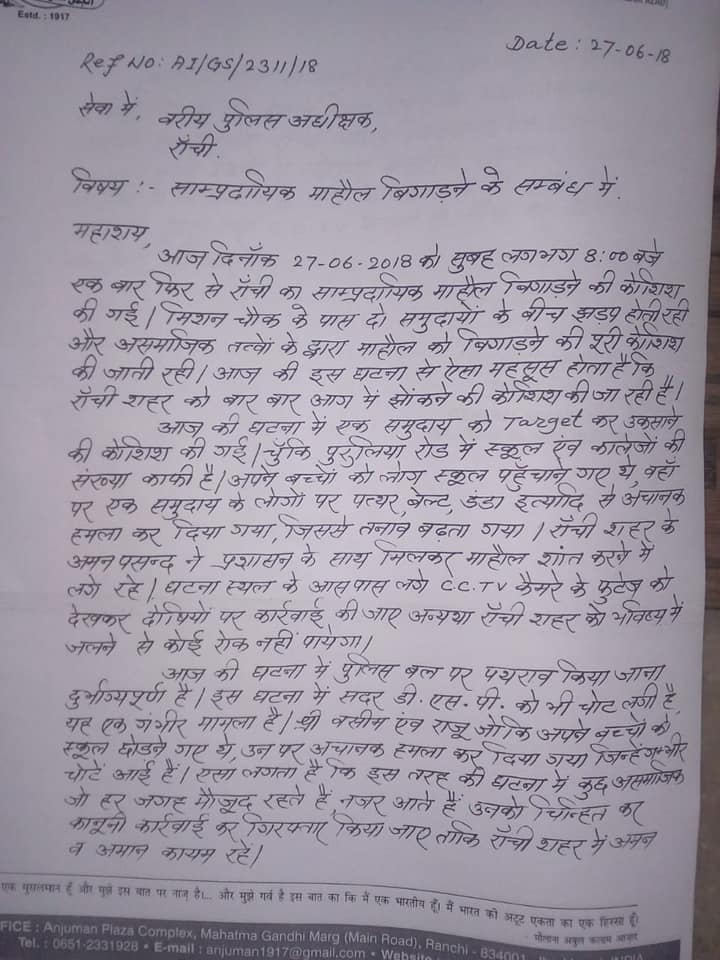 Estd. : 1917
Date : 27-06-18
Ref No: AI/GS/2311/18
सेवा में,
वरीय पुलिस अधीक्षक,
राँची.
विषय :- साम्प्रदायिक माहौल बिगाड़ने के सम्बंध में.
महाशय,
आज दिनाँक 27-06-2018 को सुबह लगभग 8:00 बजे
एक बार फिर से राँची का साम्प्रदायिक माहौल बिगाड़ने की कोशिश
की गई। मिशन चौक के पास दो समुदायों के बीच झड़प होती रही
और असमाजिक तत्वों के द्वारा माहौल को बिगाड़ने की पूरी कोशिश
की जाती रही। आज की इस घटना से ऐसा महसूस होता है कि
राँची शहर को बार बार आग में झोंकने की कोशिश की जा रही है।
आज की घटना में एक समुदाय को Target कर उकसाने
की कोशिश की गई। चुँकि पुरुलिया रोड में स्कूल एंव कालेजों की
संख्या काफी है। अपने बच्चों को लोग स्कूल पहुँचाने गए थे, वहाँ
पर एक समुदाय के लोगों पर पत्थर, बेल्ट, डंडा इत्यादि से अचानक
हमला कर दिया गया, जिससे तनाव बढ़ता गया। राँची शहर के
अमन पसन्द ने प्रशासन के साथ मिलकर माहौल शांत करने में
लगे रहे। घटना स्थल के आस पास लगे C.C.TV कैमरे के फुटेज को
देखकर दोषियों पर कार्रवाई की जाए अन्यथा राँची शहर को भविष्य में
जलने से कोई रोक नहीं पायेगा।
आज की घटना में पुलिस बल पर पथराव किया जाना
दुर्भाग्यपूर्ण है। इस घटना में सदर डी. एस. पी. को भी चोट लगी है,
यह एक गंभीर मामला है। श्री वसीम एंव राजू जो कि अपने बच्चों को
स्कूल छोडने गए थे, उन पर अचानक हमला कर दिया गया जिन्हें गम्भीर
चोटें आई हैं। एसा लगता है कि इस तरह की घटना में कुछ असमाजिक
जो हर जगह मौजूद रहते हैं, नजर आते हैं उनको चिन्हित कर
कानूनी कार्रवाई कर गिरफ्तार किया जाए ताकि राँची शहर में अमन
व अमान कायम रहें।
एक मुसलमान हूँ और मुझे इस बात पर नाज़ है।... और मुझे गर्व है इस बात का कि मैं एक भारतीय हूँ। मैं भारत की अटूट एकता का एक हिस्सा हूँ।
- मौलाना अबुल कलाम आजाद
FICE : Anjuman Plaza Complex, Mahatma Gandhi Marg (Main Road), Ranchi - 834001
Tel. : 0651-2331928 • E-mail : anjuman1917@gmail.com • Website